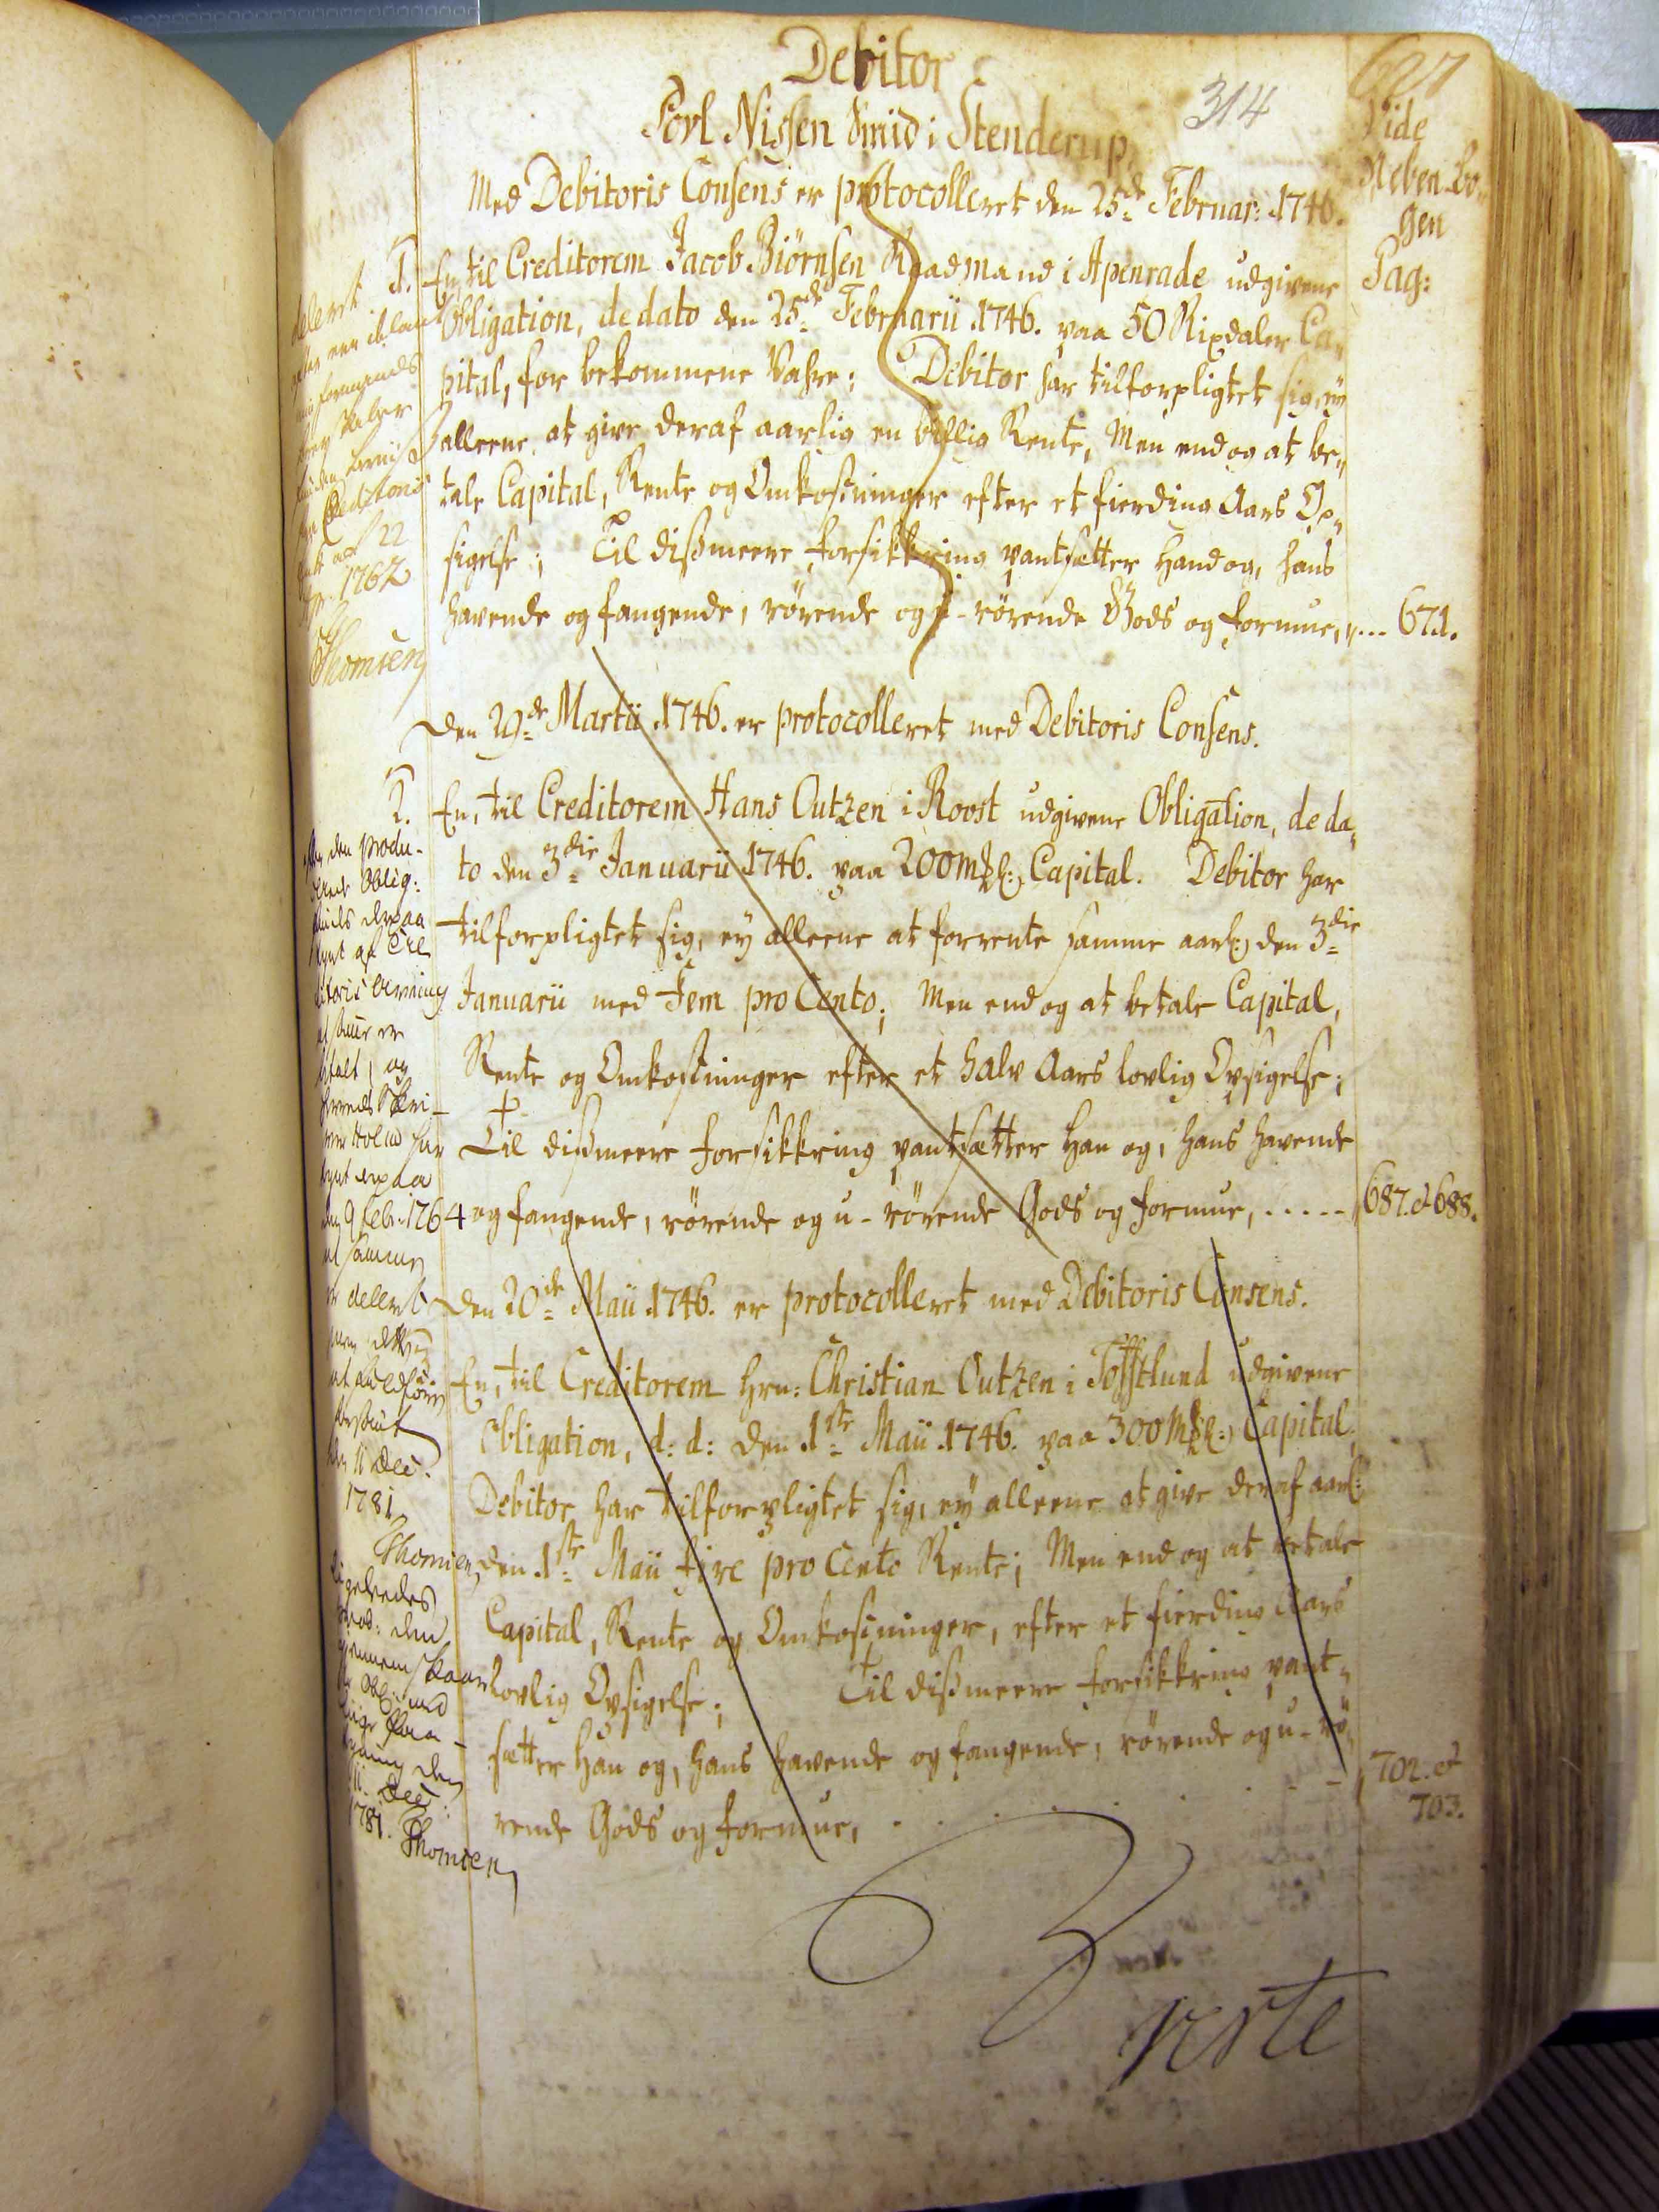 Debitor
314
627
Povl Nissen Smid i Stenderup
Vide
Neben-Bo-
gen
Pag:
Med Debitoris Consens er protocolleret den 25de Februar: 1746.
1. En, til Creditorem Jacob Biörnsen Raadmand i Apenrade udgivene
Obligation, de dato den 25de Februarii 1746. paa 50 Rixdaler Ca-
pital, for bekommene Vahre; Debitor har tilforpligtet sig, ey
alleene, at give deraf aarlig en billig Rente, Men end og at be-
tale Capital, Rente og Omkostninger efter et fierding Aars Op-
sigelse; Til dissmeere forsikkring pantsætter Hand og, hans
havende og fangende, rörende og u-rörende Gods og formue, ... 671.
deleret
Creditoris
22
1762
Thomsen
Den 29de Martii 1746. er protocolleret med Debitoris Consens.
2. En, til Creditorem Hans Outzen i Roost udgivene Obligation, de da-
to den 3die Januarii 1746. paa 200 mk l: Capital. Debitor har
tilforpligtet sig, ey alleene at forrente samme aarl: den 3die
Januarii med Fem pro Cento; Men end og at betale Capital,
Rente og Omkostninger efter et halv Aars lovlig Opsigelse;
Til dissmeere forsikkring pantsætter Han og, hans havende
og fangende, rörende og u-rörende Gods og formue, ..... 687. et 688.
den produ-
Oblig:
af Cre
ditoris Arving
er
og
9 Febr. 1764
samme
deleret
11 Dec.
1781
Thomsen
Den 20de Maii 1746. er protocolleret med Debitoris Consens.
En, til Creditorem Hrn: Christian Outzen i Tofftlund udgivene
Obligation, d: d: den 1ste Maii 1746. paa 300 mk l: Capital.
Debitor har tilforpligtet sig, ey alleene at give deraf aarl:
den 1ste Maii Fire pro Cento Rente; Men end og at betale
Capital, Rente og Omkostninger, efter et fierding Aars
lovlig Opsigelse; Til dissmeere forsikkring pant-
sætter Han og, hans havende og fangende, rörende og u-rö-
rende Gods og formue, . . . . . . 702. et
703.
ligeledes
den
11 Dec:
1781. Thomsen
Verte